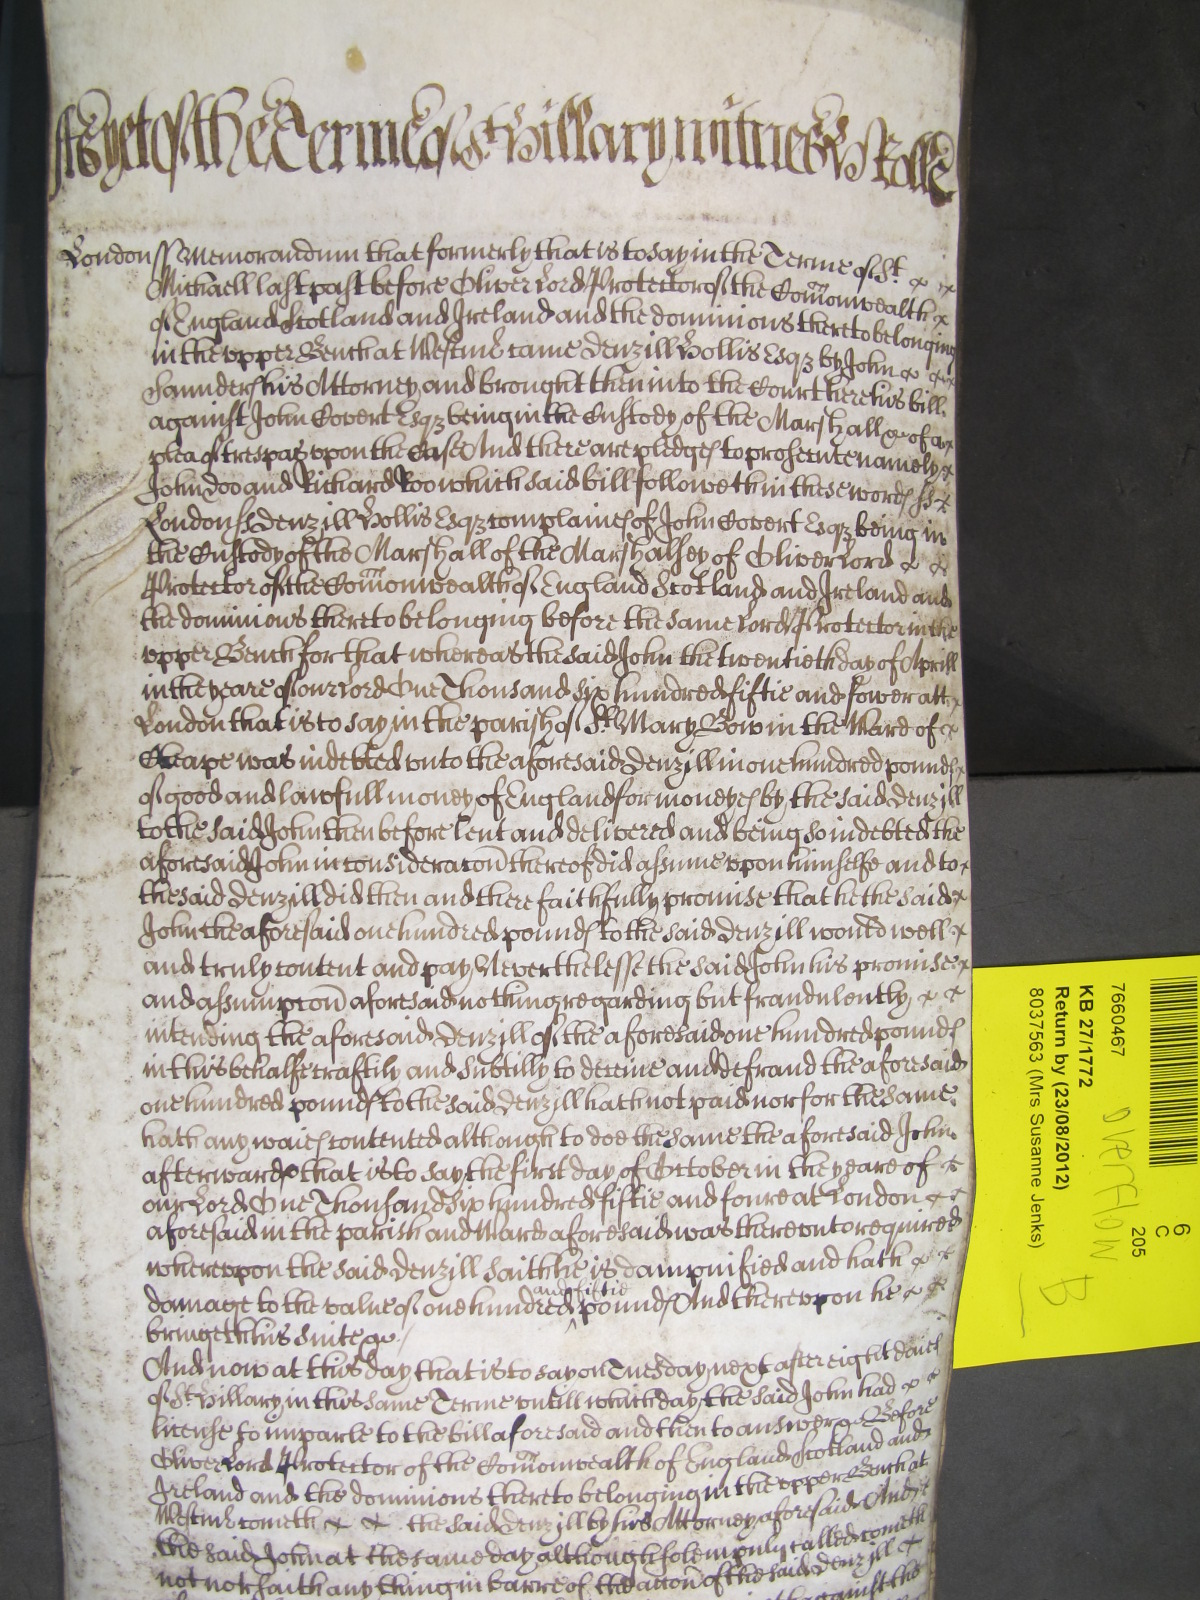 As yet of the Terme of St Hillary witnes H Rolle
London ss Memorandum that formerly that is to say in the Terme of St.
Michaell last past before Oliver Lord Protector of the Com̃onwealth
of England Scotland and Ireland and the dominions thereto belonging
in the upper Bench at Westmr came Denzill Hollis Esqz by John
Saunders his Attorney and brought then into the Court here his bill
against John Covert Esqz being in the Custody of the Marshall &c of a
plea of trespas upon the Case And there are pledges to prosecute namely
John Doo and Richard Roo which said bill followeth in these words ss
London ss Denzill Hollis Esqz complaines of John Covert Esqz being in
the Custody of the Marshall of the Marshalsey of Oliver Lord
Protector of the Com̃onwealth of England Scotland and Ireland and
the dominions thereto belonging before the same Lord Protector in the
upper Bench for that whereas the said John the twentieth day of Aprill
in the yeare of our Lord One Thousand six hundred fiftie and fower att
London that is to say in the parish of St Mary Bow in the Ward of
Cheape was indebted unto the aforesaid Denzill in one hundred pounds
of good and lawfull money of England for moneyes by the said Denzill
to the said John then before lent and delivered and being so indebted the
aforesaid John in consideracoñ thereof did assume upon himselfe and to
the said Denzill did then and there faithfully promise that he the said
John the aforesaid one hundred pounds to the said Denzill would well
and truly content and pay Neverthelesse the said John his promise
and assumpcoñ aforesaid nothing regarding but fraudulently
intending the aforesaid Denzill of the aforesaid one hundred pounds
in this behalfe craftily and subtilly to deceive and defraud the aforesaid
one hundred pounds to the said Denzill hath not paid nor for the same
hath any waies contented although to doe the same the aforesaid John
afterwards that is to say the first day of October in the yeare of
our Lord One Thousand Six hundred fiftie and foure at London
aforesaid in the parish and Ward aforesaid was thereunto required
whereupon the said Denzill saith he is dampnified and hath
and fiftie
damage to the value of one hundred ^ pounds And thereupon he
bringeth his suite &c.
And now at this day that is to say on Tuesday next after eight daies
of St Hillary in this same Terme untill which day the said John had
license to imparle to the bill aforesaid and then to answer &c Before
Oliver Lord Protector of the Com̃onwealth of England Scotland and
Ireland and the dominions thereto belonging in the upper Bench at
Westmr cometh the said Denzill by his Attorney aforesaid And
the said John at the same day although solempnly called cometh
not nor saith any thing in barre of the accoñ of the said Denzill
against the
6
C
205
7660467
KB 27/1772
Return by (23/08/2012)
8037563 (Mrs Susanne Jenks)
overflow
B